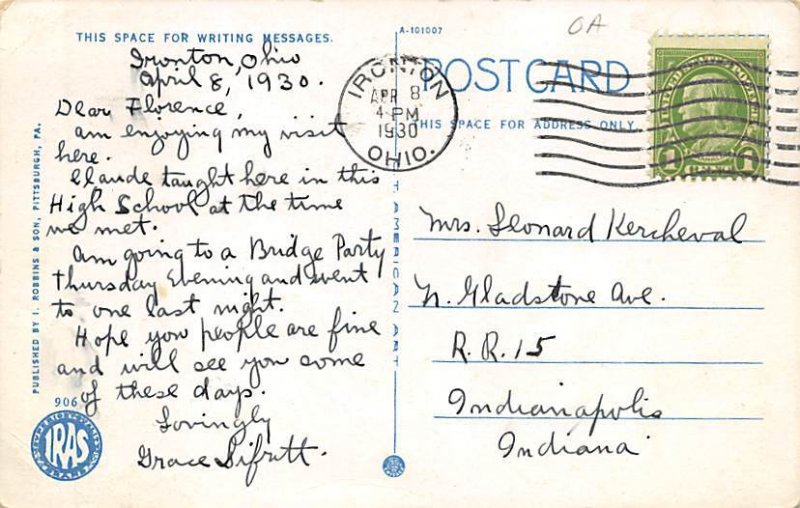 THIS SPACE FOR WRITING MESSAGES.
Ironton, Ohio
April 8, 1930.
Dear Florence,
am enjoying my visit
here.
Claude taught here in this
High School at the time
we met.
Am going to a Bridge Party
Thursday Evening and went
to one last night.
Hope you people are fine
and will see you some
of these days.
Lovingly
Grace Sifritt.
PUBLISHED BY I. ROBBINS & SON, PITTSBURGH, PA.
906
IRAS
A-101007
OA
POST CARD
THIS SPACE FOR ADDRESS ONLY
IRONTON
APR 8
4-PM
1930
OHIO.
AMERICAN ART
Mrs. Leonard Kercheval
N. Gladstone Ave.
R.R. 15
Indianapolis
Indiana
1 1